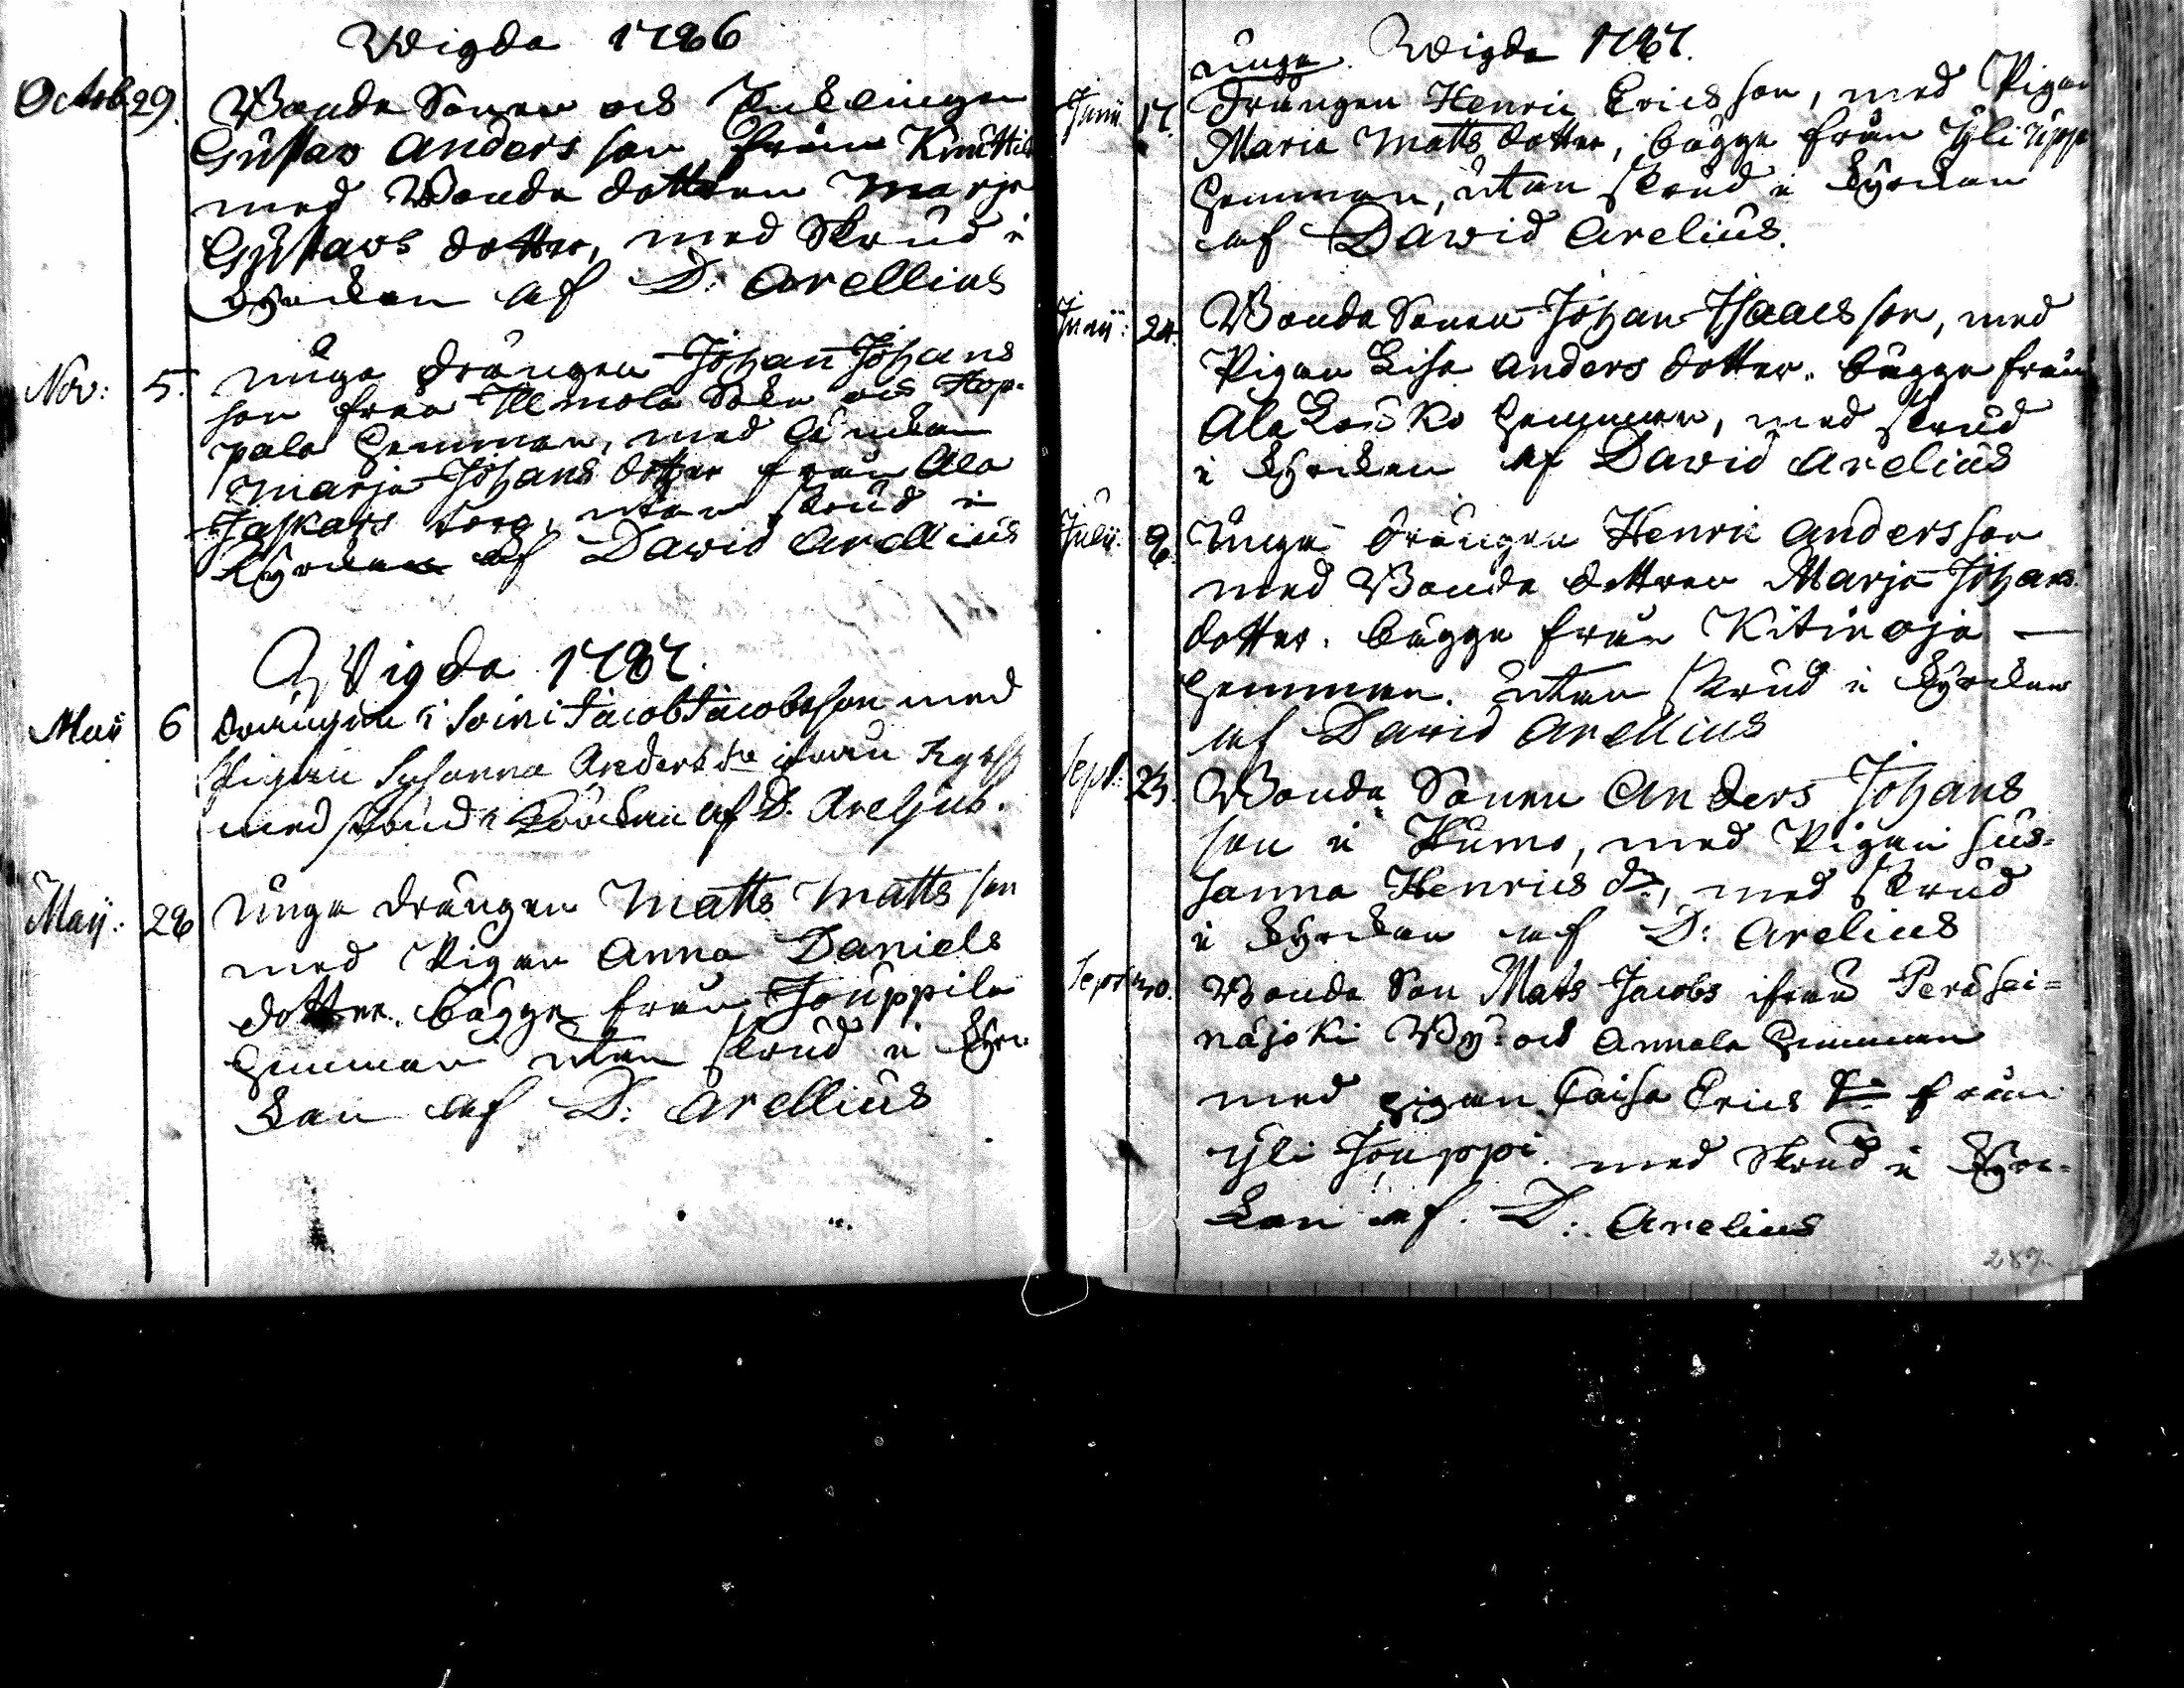 Wigda 1786
Octob 29. Bonde Sonen och Enklingen
Gustav Anders son från Knuttila
med Bonde dottren Marja
Gustavs dotter, med Skrud i
kyrckan af D: Arellius
Nov: 5. unge drängen Johan Johans
son från Illmola Sokn och Hop-
pala hemman, med änckan
Marja Johans dotter från Ala
Jaskars torp, utan skrud i
kyrckan af David Arellius
Wigda 1787.
Maii 6 drängen i Soini Jacob Jacobsson med
Pigan Susanna Anders dr ifrån
med skrud i kyrckan af D. Areljus.
Maij: 28 unge drängen Matts Matts son
med Pigan Anna Daniels
dotter. bägge från Jouppila
hemman utan skrud i kyrc
kan af D: Arellius
unge. Wigda 1787.
Junii 17. drängen Henric Erics son, med Pigan
Maria Matts dotter, bägge från Yli
hemman, utan skrud i kyrckan
af David Arelius.
Junij: 24. Bonde Sonen Johan Isaacs son, med
Pigan Lisa Anders dotter. bägge från
Ala Louko hemman, med skrud
i kyrckan af David Arelius
Julii: 8 Unge drängen Henric Anders son
med Bonde dottren Marja Johans
dotter. bägge från Kitinoja —
hemman. utan skrud i kyrckan
af David Arellius
Sept: 23. Bonde Sonen Anders Johans
son i Kumo, med Pigan Sus-
sanna Henrics dr, med skrud
i kyrckan af D: Arelius
Sept: 30. Bonde Son Mats Jacobs ifrån Perä Sei=
näjoki By och Annala hemman
med pigan Caisa Erics dr från
Yli Jouppi. med Skrud i kyrc-
kan af. D: Arelius
287.